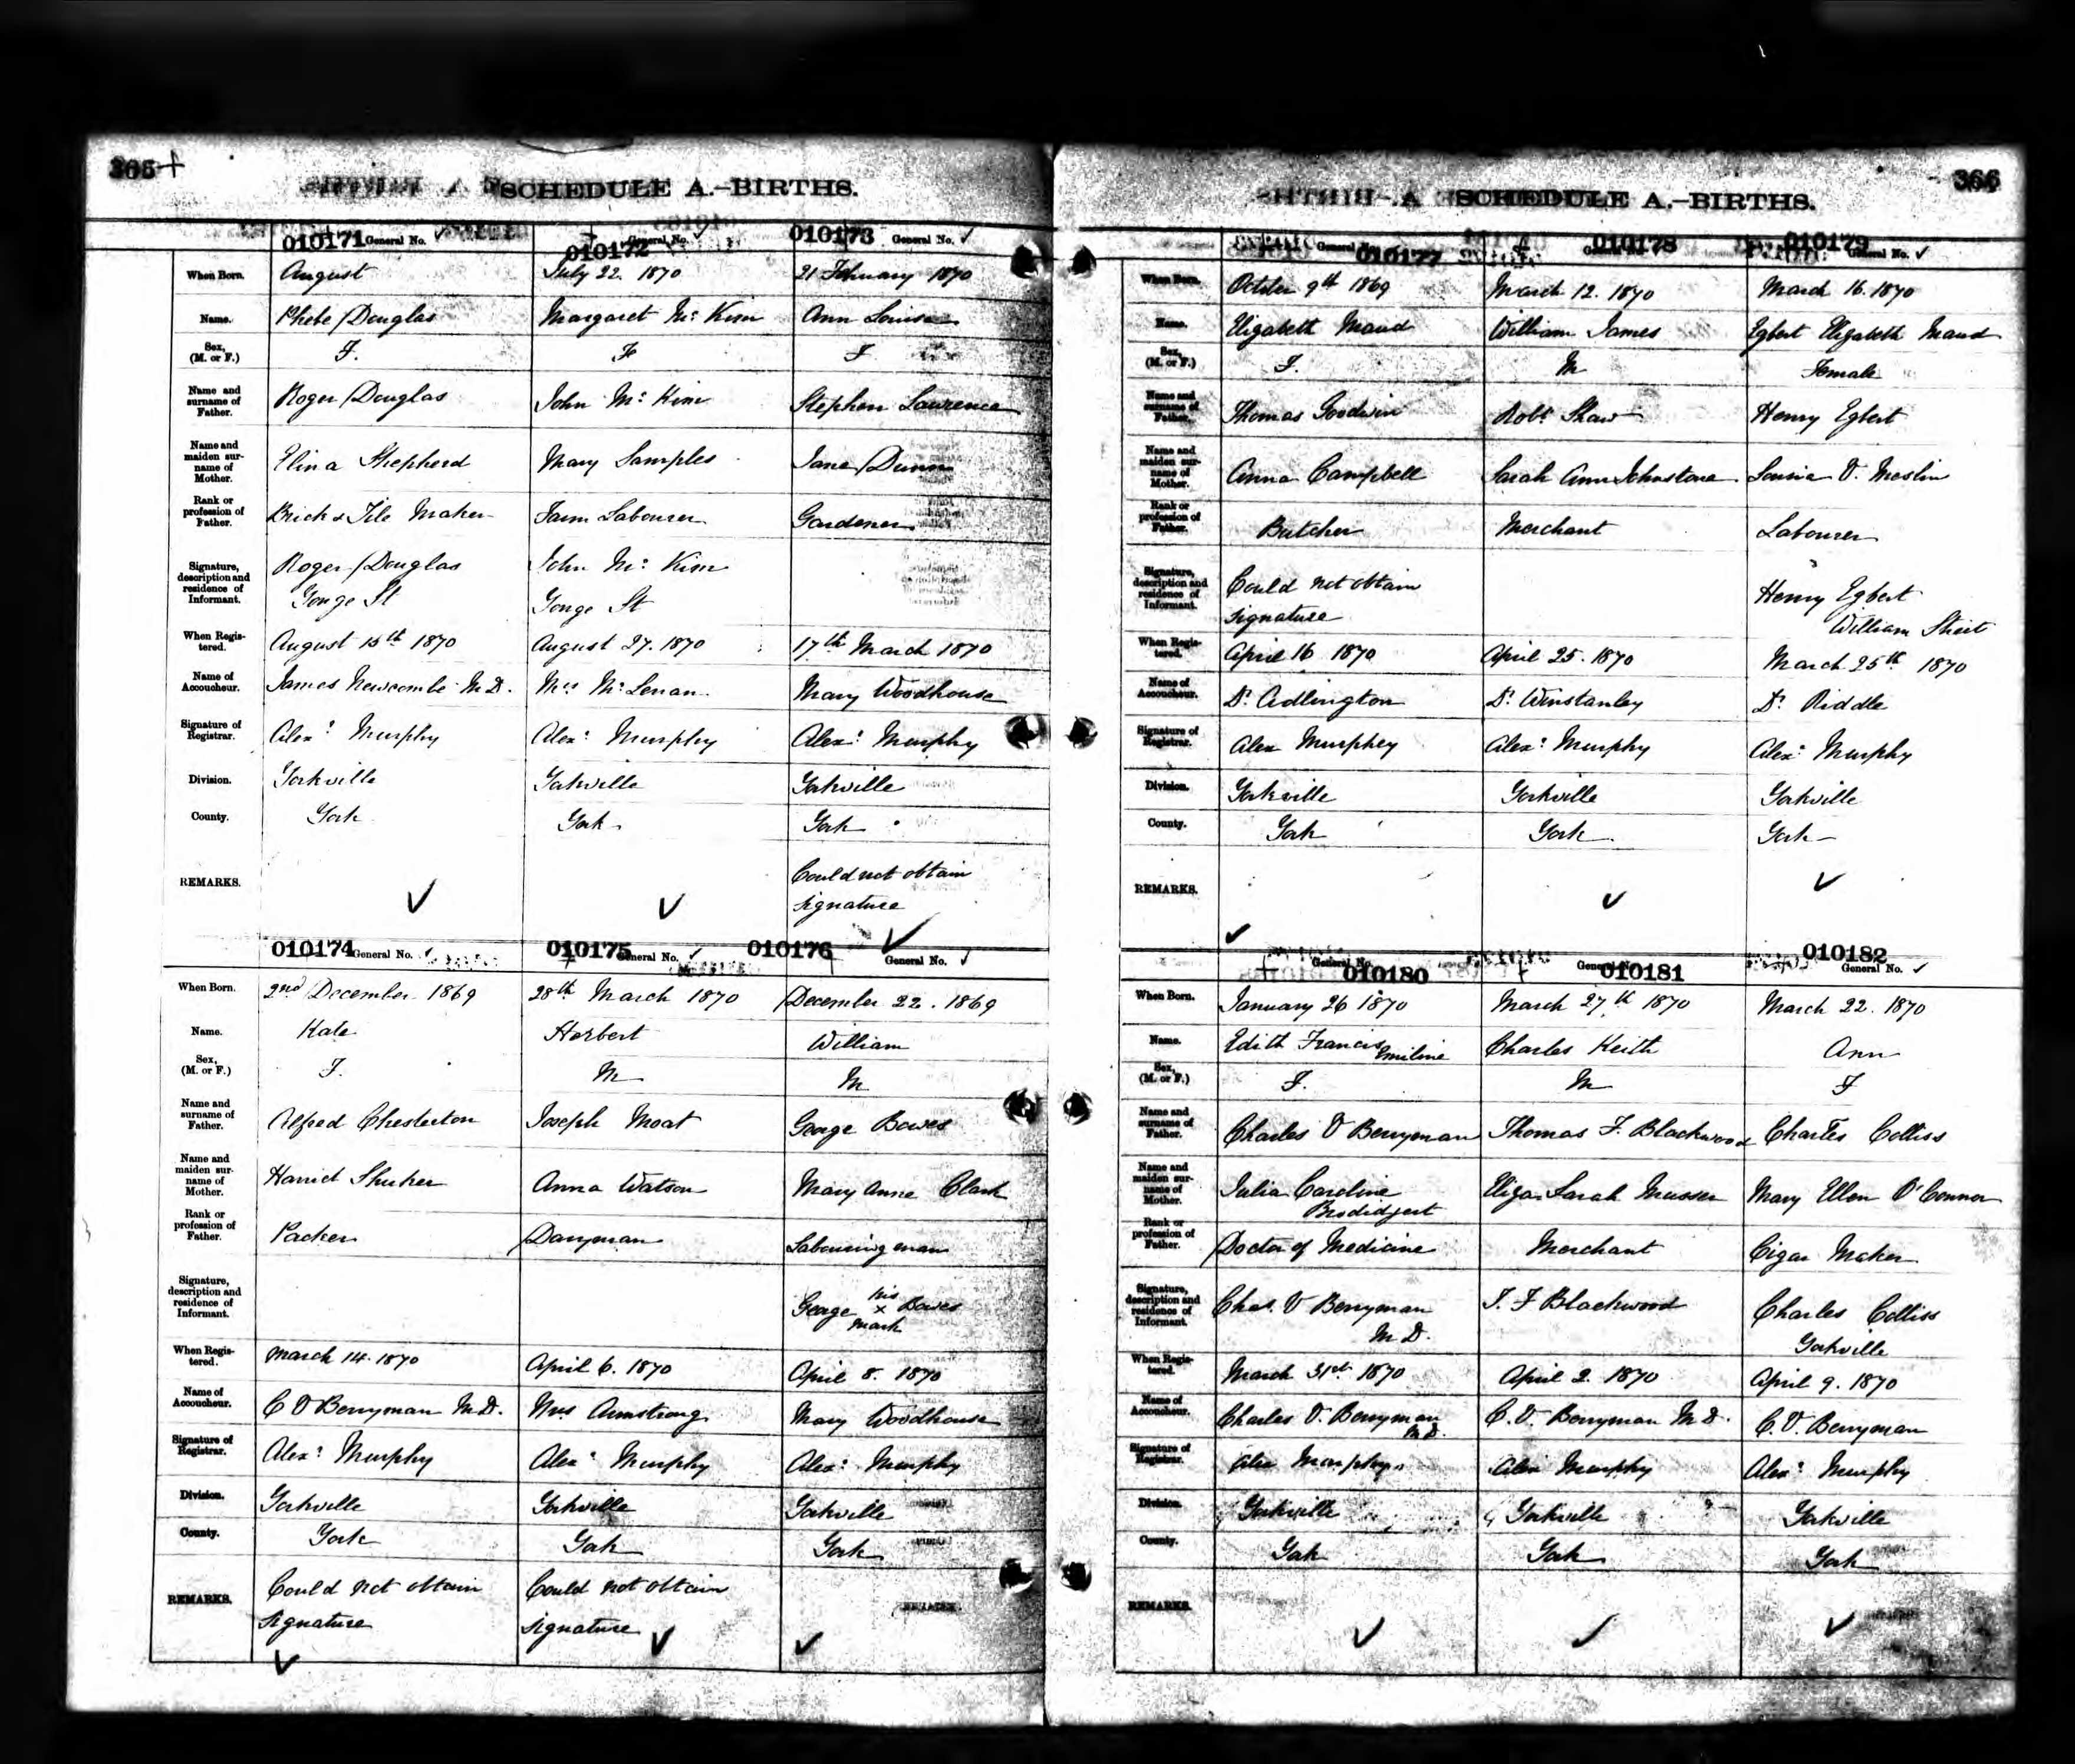 365
SCHEDULE A.—BIRTHS.
010171 General No. 010172 General No. 010173 General No.
When Born. August July 22. 1870 21 February 1870
Name. Phebe Douglas Margaret McKim Ann Louisa
Sex, (M. or F.) F. F F
Name and surname of Father. Roger Douglas John McKim Stephen Lawrence
Name and maiden surname of Mother. Elina Shepherd Mary Samples Jane Dunn
Rank or profession of Father. Brick & Tile Maker Farm Labourer Gardener
Signature, description and residence of Informant. Roger Douglas John McKim
Yonge St Yonge St
When Registered. August 15th 1870 August 27. 1870 17th March 1870
Name of Accoucheur. James Newcombe M.D. Mrs McLenan Mary Woodhouse
Signature of Registrar. Alexr Murphy Alexr Murphy Alexr Murphy
Division. Yorkville Yorkville Yorkville
County. York York York
REMARKS. Could not obtain
signature
010174 General No. 010175 General No. 010176 General No.
When Born. 2nd December 1869 28th March 1870 December 22. 1869
Name. Kate Herbert William
Sex, (M. or F.) F. M M
Name and surname of Father. Alfred Chesterton Joseph Moat George Bowes
Name and maiden surname of Mother. Harriet Shuker Anna Watson Mary Anne Clark
Rank or profession of Father. Packer Dairyman Labouring man
Signature, description and residence of Informant. George his x mark Bowes
When Registered. March 14. 1870 April 6. 1870 April 8. 1870
Name of Accoucheur. C V Berryman M.D. Mrs Armstrong Mary Woodhouse
Signature of Registrar. Alexr Murphy Alexr Murphy Alexr Murphy
Division. Yorkville Yorkville Yorkville
County. York York York
REMARKS. Could not obtain Could not obtain
signature signature
366
SCHEDULE A.—BIRTHS.
General No. 010177 010178 General No. 010179 General No.
When Born. October 9th 1869 March 12. 1870 March 16. 1870
Name. Elizabeth Maud William James Egbert Elizabeth Maud
Sex, (M. or F.) F. M Female
Name and surname of Father. Thomas Goodwin Robt Shaw Henry Egbert
Name and maiden surname of Mother. Anna Campbell Sarah Ann Johnstone Louisa V. Meslin
Rank or profession of Father. Butcher Merchant Labourer
Signature, description and residence of Informant. Could not obtain Henry Egbert
signature William Street
When Registered. April 16 1870 April 25. 1870 March 25th 1870
Name of Accoucheur. Dr Adlington Dr Winstanley Dr Riddle
Signature of Registrar. Alex Murphey Alexr Murphy Alexr Murphy
Division. Yorkville Yorkville Yorkville
County. York York York
REMARKS.
General No. 010180 General No. 010181 010182 General No.
When Born. January 26 1870 March 27th 1870 March 22. 1870
Name. Edith Francis Emiline Charles Keith Ann
Sex, (M. or F.) F. M F
Name and surname of Father. Charles V Berryman Thomas F. Blackwood Charles Colliss
Name and maiden surname of Mother. Julia Caroline Eliza Sarah Musser Mary Ellen O'Connor
Rank or profession of Father. Doctor of Medicine Merchant Cigar Maker
Signature, description and residence of Informant. Chas. V Berryman T. F Blackwood Charles Colliss
M.D. Yorkville
When Registered. March 31st 1870 April 2. 1870 April 9. 1870
Name of Accoucheur. Charles V. Berryman M.D. C. V. Berryman M.D. C. V. Berryman
Signature of Registrar. Alex Murphy Alex Murphy Alexr Murphy
Division. Yorkville Yorkville Yorkville
County. York York York
REMARKS.